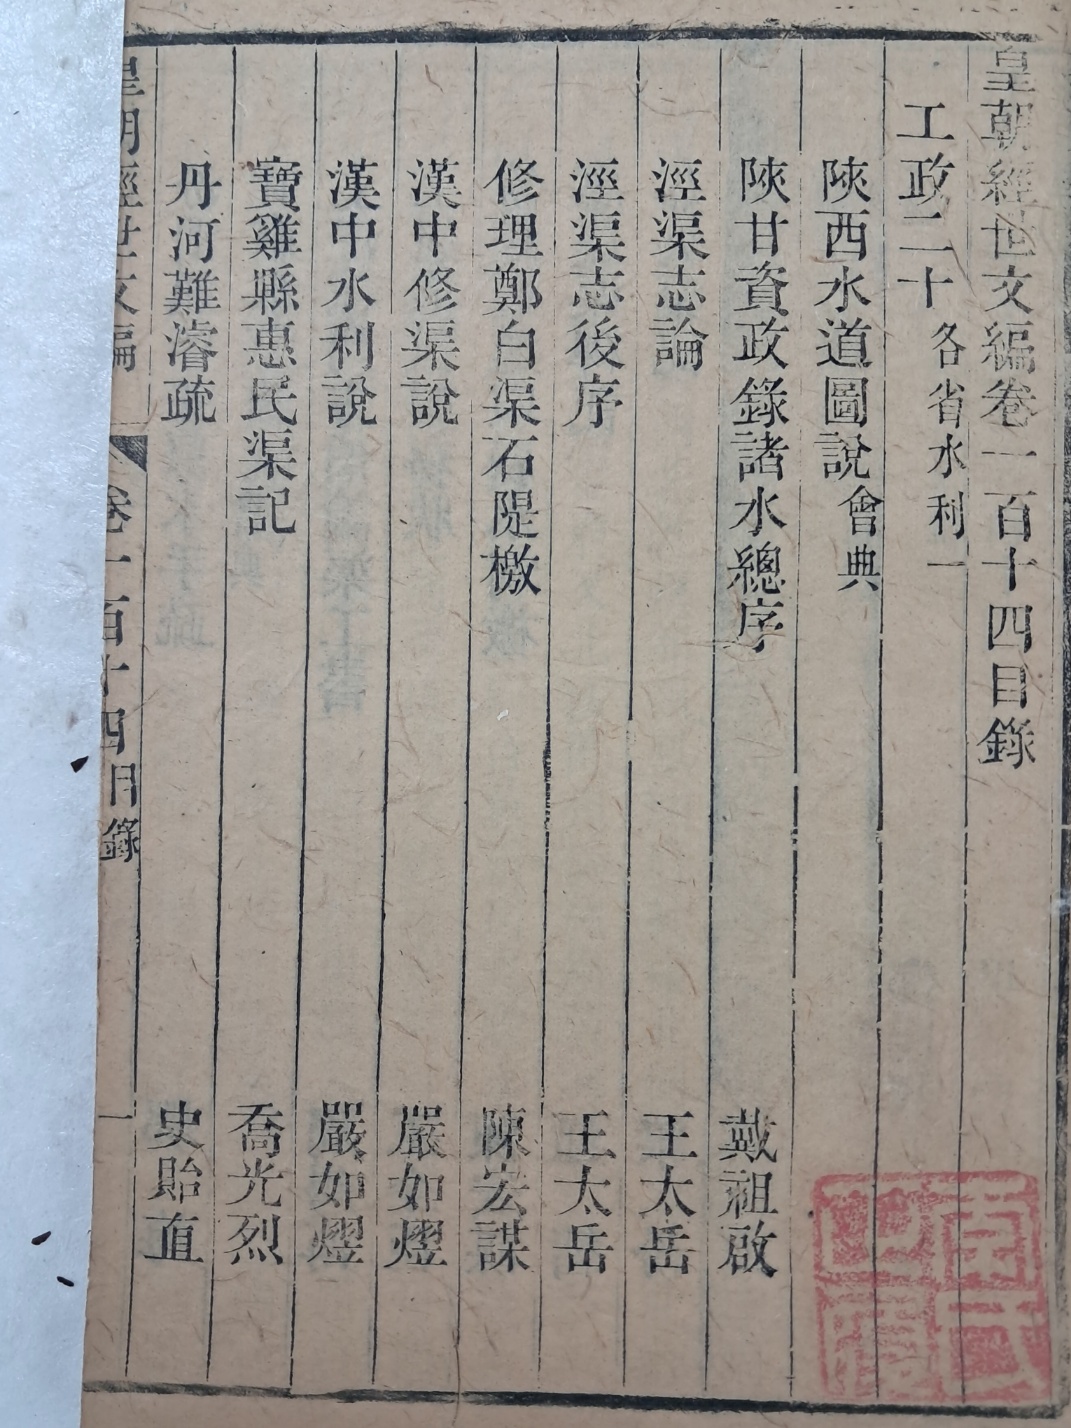 皇朝經世文編卷一百十四目錄
工政二十各省水利一
陝西水道圖說會典
陝甘資政錄諸水總序 戴祖啟
涇渠志論 王太岳
涇渠志後序 王太岳
修理鄭白渠石隄檄 陳宏謀
漢中修渠說 嚴如熤
漢中水利說 嚴如熤
寶雞縣惠民渠記 喬光烈
丹河難濬疏 史貽直
皇朝經世文編 卷一百十四目錄 一